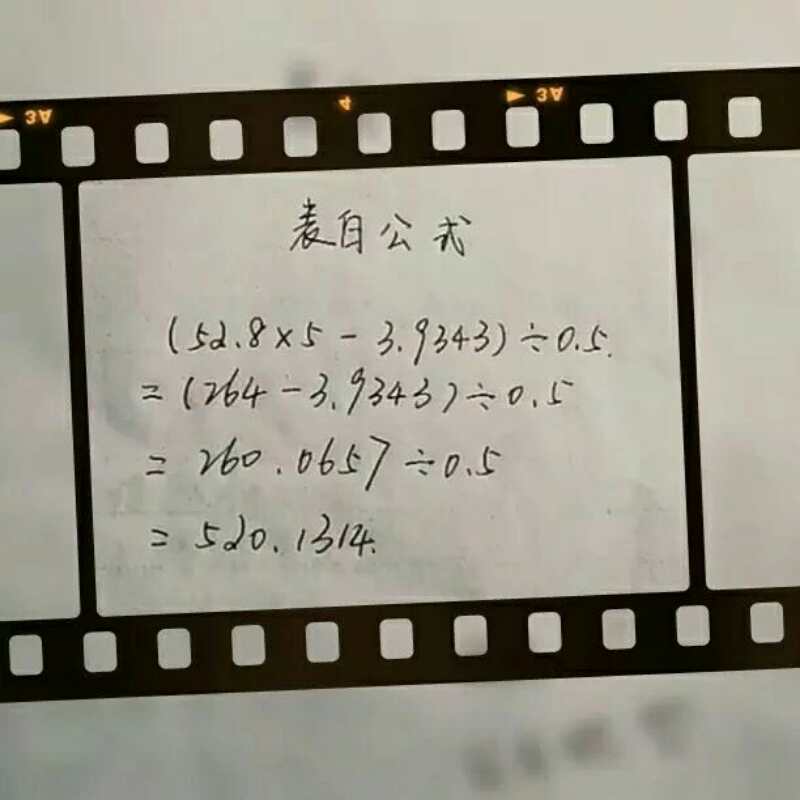 ▶ 3A
4
▶ 3A
表白公式
(52.8×5-3.9343)÷0.5.
=(264-3.9343)÷0.5
=260.0657÷0.5
=520.1314.